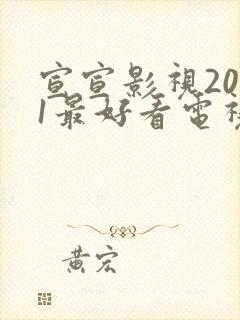 宣宣影視20
1最好看電視
黃宏